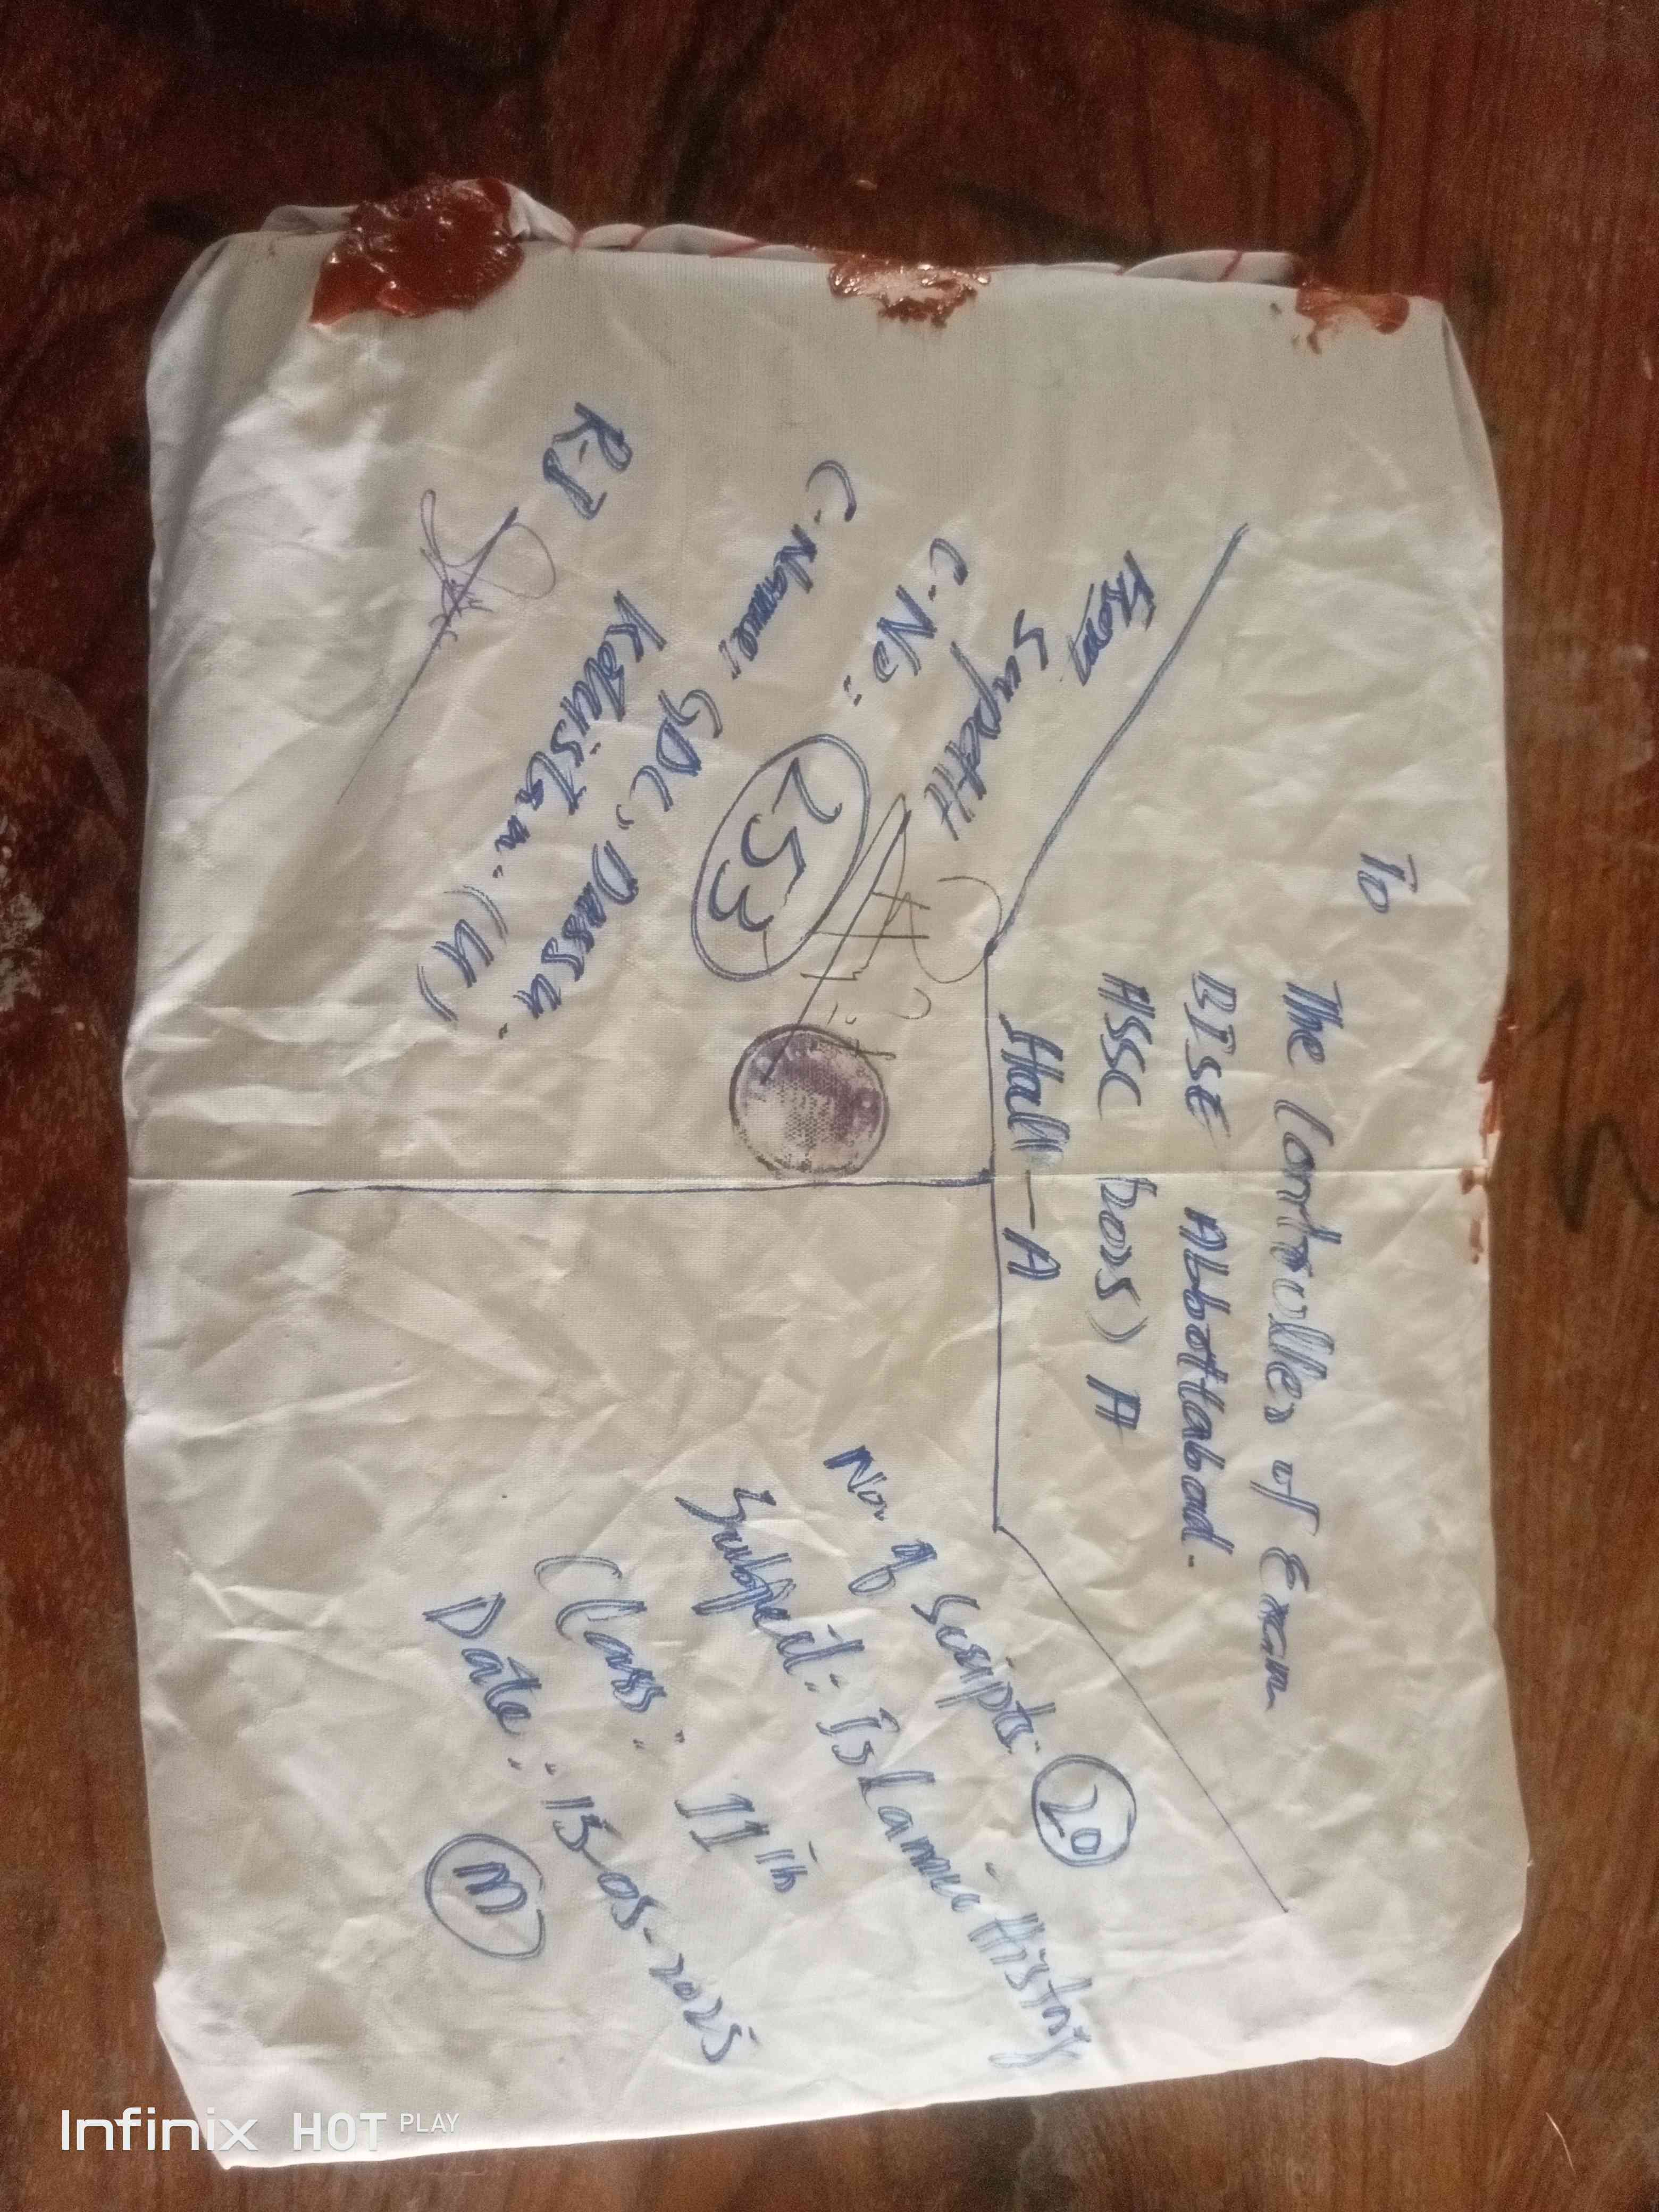 To
The Controller of Exam
BISE Abbottabad.
HSSC boys) A
Hall - A
From
Supdtt
C-No:
253
C-Name: GDC, Dassu
Kohistan. (U)
R-I
No. of Scripts: 20
Subject: Islamic History
Class: 11th
Date: 15-05-2025
M
Infinix HOT PLAY